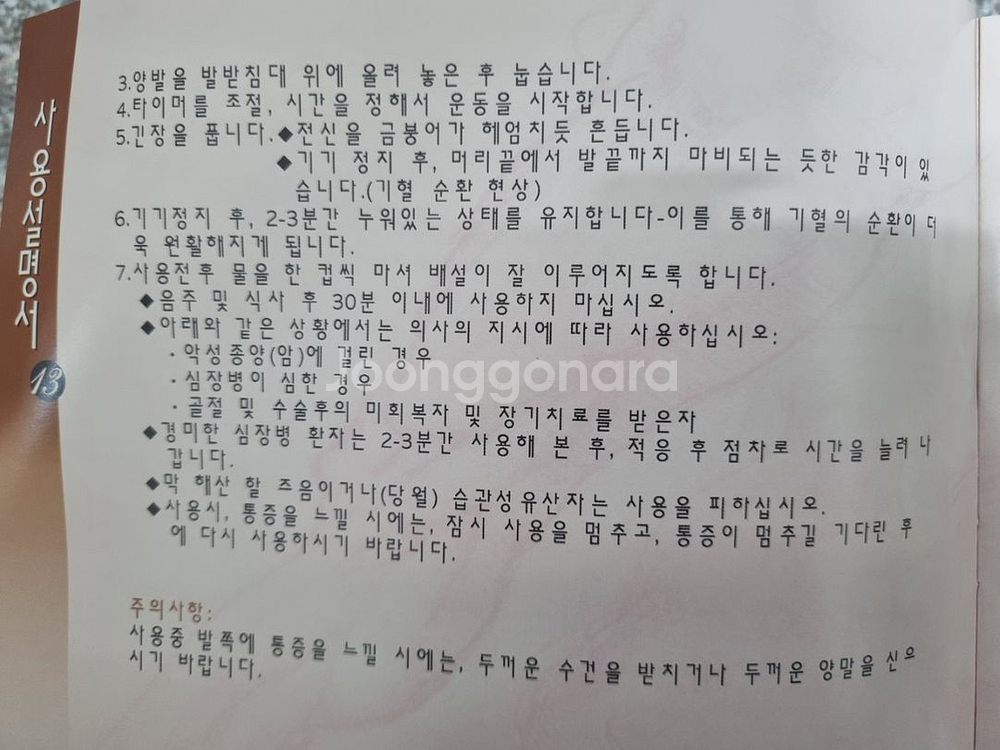 사용설명서
13
3.양발을 발받침대 위에 올려 놓은 후 눕습니다.
4.타이머를 조절, 시간을 정해서 운동을 시작합니다.
5.긴장을 풉니다.◆전신을 금붕어가 헤엄치듯 흔듭니다.
◆기기 정지 후, 머리끝에서 발끝까지 마비되는 듯한 감각이 있
습니다.(기혈 순환 현상)
6.기기정지 후, 2-3분간 누워있는 상태를 유지합니다-이를 통해 기혈의 순환이 더
욱 원활해지게 됩니다.
7.사용전후 물을 한 컵씩 마셔 배설이 잘 이루어지도록 합니다.
◆음주 및 식사 후 30분 이내에 사용하지 마십시오.
◆아래와 같은 상황에서는 의사의 지시에 따라 사용하십시오:
·악성종양(암)에 걸린 경우
·심장병이 심한 경우
·골절 및 수술후의 미회복자 및 장기치료를 받은자
◆경미한 심장병 환자는 2-3분간 사용해 본 후, 적응 후 점차로 시간을 늘려 나
갑니다.
◆막 해산 할 즈음이거나(당월) 습관성유산자는 사용을 피하십시오.
◆사용시, 통증을 느낄 시에는, 잠시 사용을 멈추고, 통증이 멈추길 기다린 후
에 다시 사용하시기 바랍니다.
주의사항:
사용중 발쪽에 통증을 느낄 시에는, 두꺼운 수건을 받치거나 두꺼운 양말을 신으
시기 바랍니다.
joonggonara